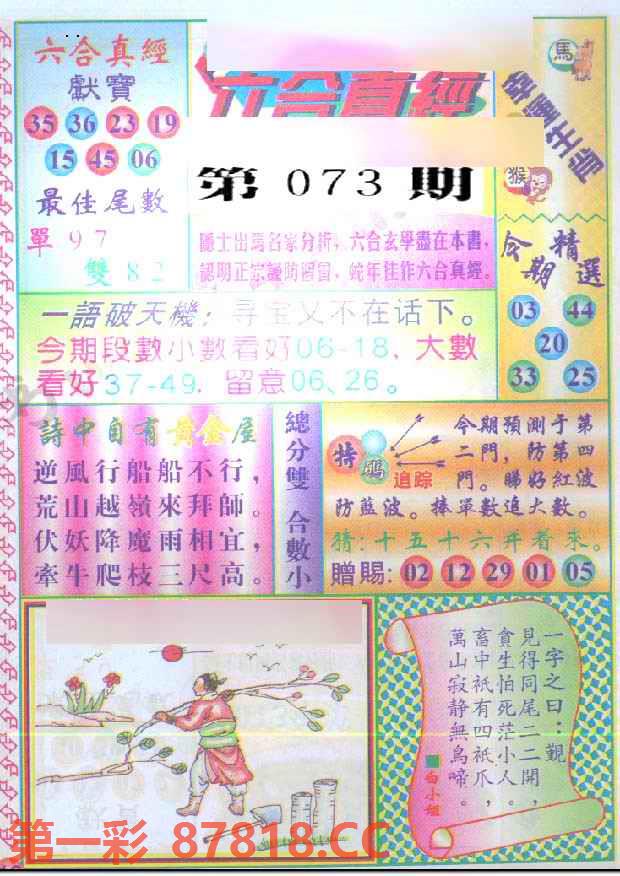 六合真經
獻寶
35 36 23 19
15 45 06
最佳尾數
單97
雙82
六合真經
第073期
六合玄學盡在本書，
蛇年佳作六合真經。
馬
猴
今期精選
03 44
20
33 25
一語破天機：寻宝又不在话下。
今期段數小數看好06-18、大數
看好37-49．留意06、26。
詩中自有黃金屋
逆風行船船不行，
荒山越嶺來拜師。
伏妖降魔雨相宜，
牽牛爬枝三尺高。
總分雙 合數小
特碼
追踪
今期預測于第
二門，防第四
門。睇好紅波
防藍波。捧單數追大數。
猜：十五十六年看來。
贈賜：02 12 29 01 05
一字之曰：觀
見得同尾二二開，
貪生怕死茫小人。
畜中祇有四祇爪，
萬山寂静無鳥啼。
白小姐
第一彩 87818.CC